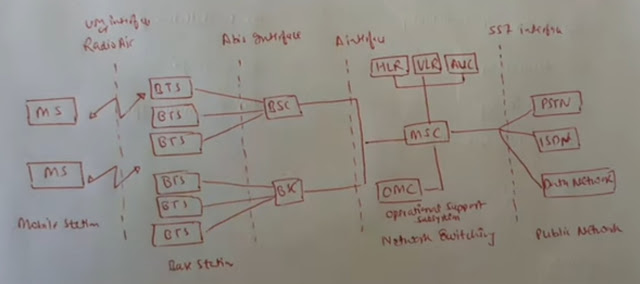 UM interface
or
Radio Air
Abis Interface
A interface
SS7 interface
HLR
VLR
AUC
BTS
MS
BTS
BSC
PSTN
BTS
MSC
ISDN
MS
BTS
BTS
BSC
OMC
Data Network
BTS
Operational Support
Subsystem
Mobile Station
Network Switching
Public Network
Base Station